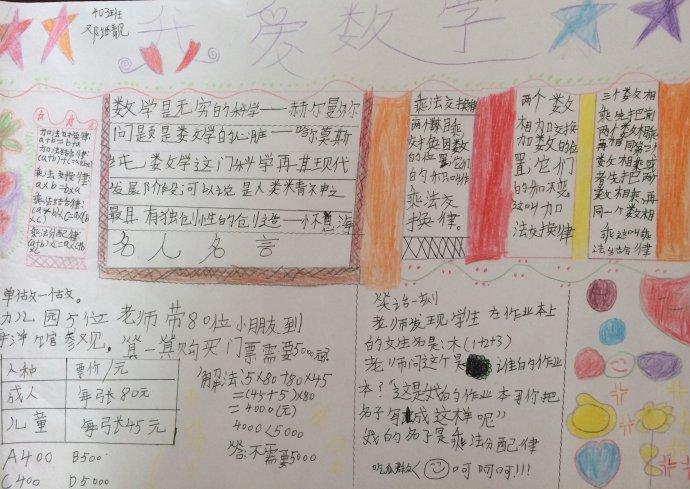 403班
我爱数学
加法交换律
a+b=b+a
乘法交换律
axb=bxa
乘法分配律
数学是无穷的科学——赫尔曼外尔
问题是数学的心脏——哈尔莫斯
纯数学这门科学再其现代
发展阶段可以说是人类精神之
最具有独创性的创造——怀海
名人名言
乘法交换律
两个数相乘
交换因数
的位置它们
的积不变叫作
乘法交
换律。
两个数
相加交换
加数的位
置,它们
的和不变
这叫加
法交换律
三个数相
乘先把前
两个数相乘
再和同第三个
数相乘或
者先把两
个数相乘,再
同一个数相
乘这叫乘
法结合律
单做一做。
幼儿园5位老师带80位小朋友到
海洋馆参观。算一算购买门票需要5000
人种 票价/元
成人 每张80元
儿童 每张45元
A400 B500
C400 D5000
解法:5×80+80×45
=(45+5)×80
=4000(元)
4000<5000
答:不需要5000
笑话一则
老师发现学生在作业本上
的文生名是:木(1+2+3)
老师问这个是谁的作业
本?“这是我的作业本哥你把
名子写成这样呢”
我的名子是乘法分配律
吃瓜群众 呵呵呵!!!